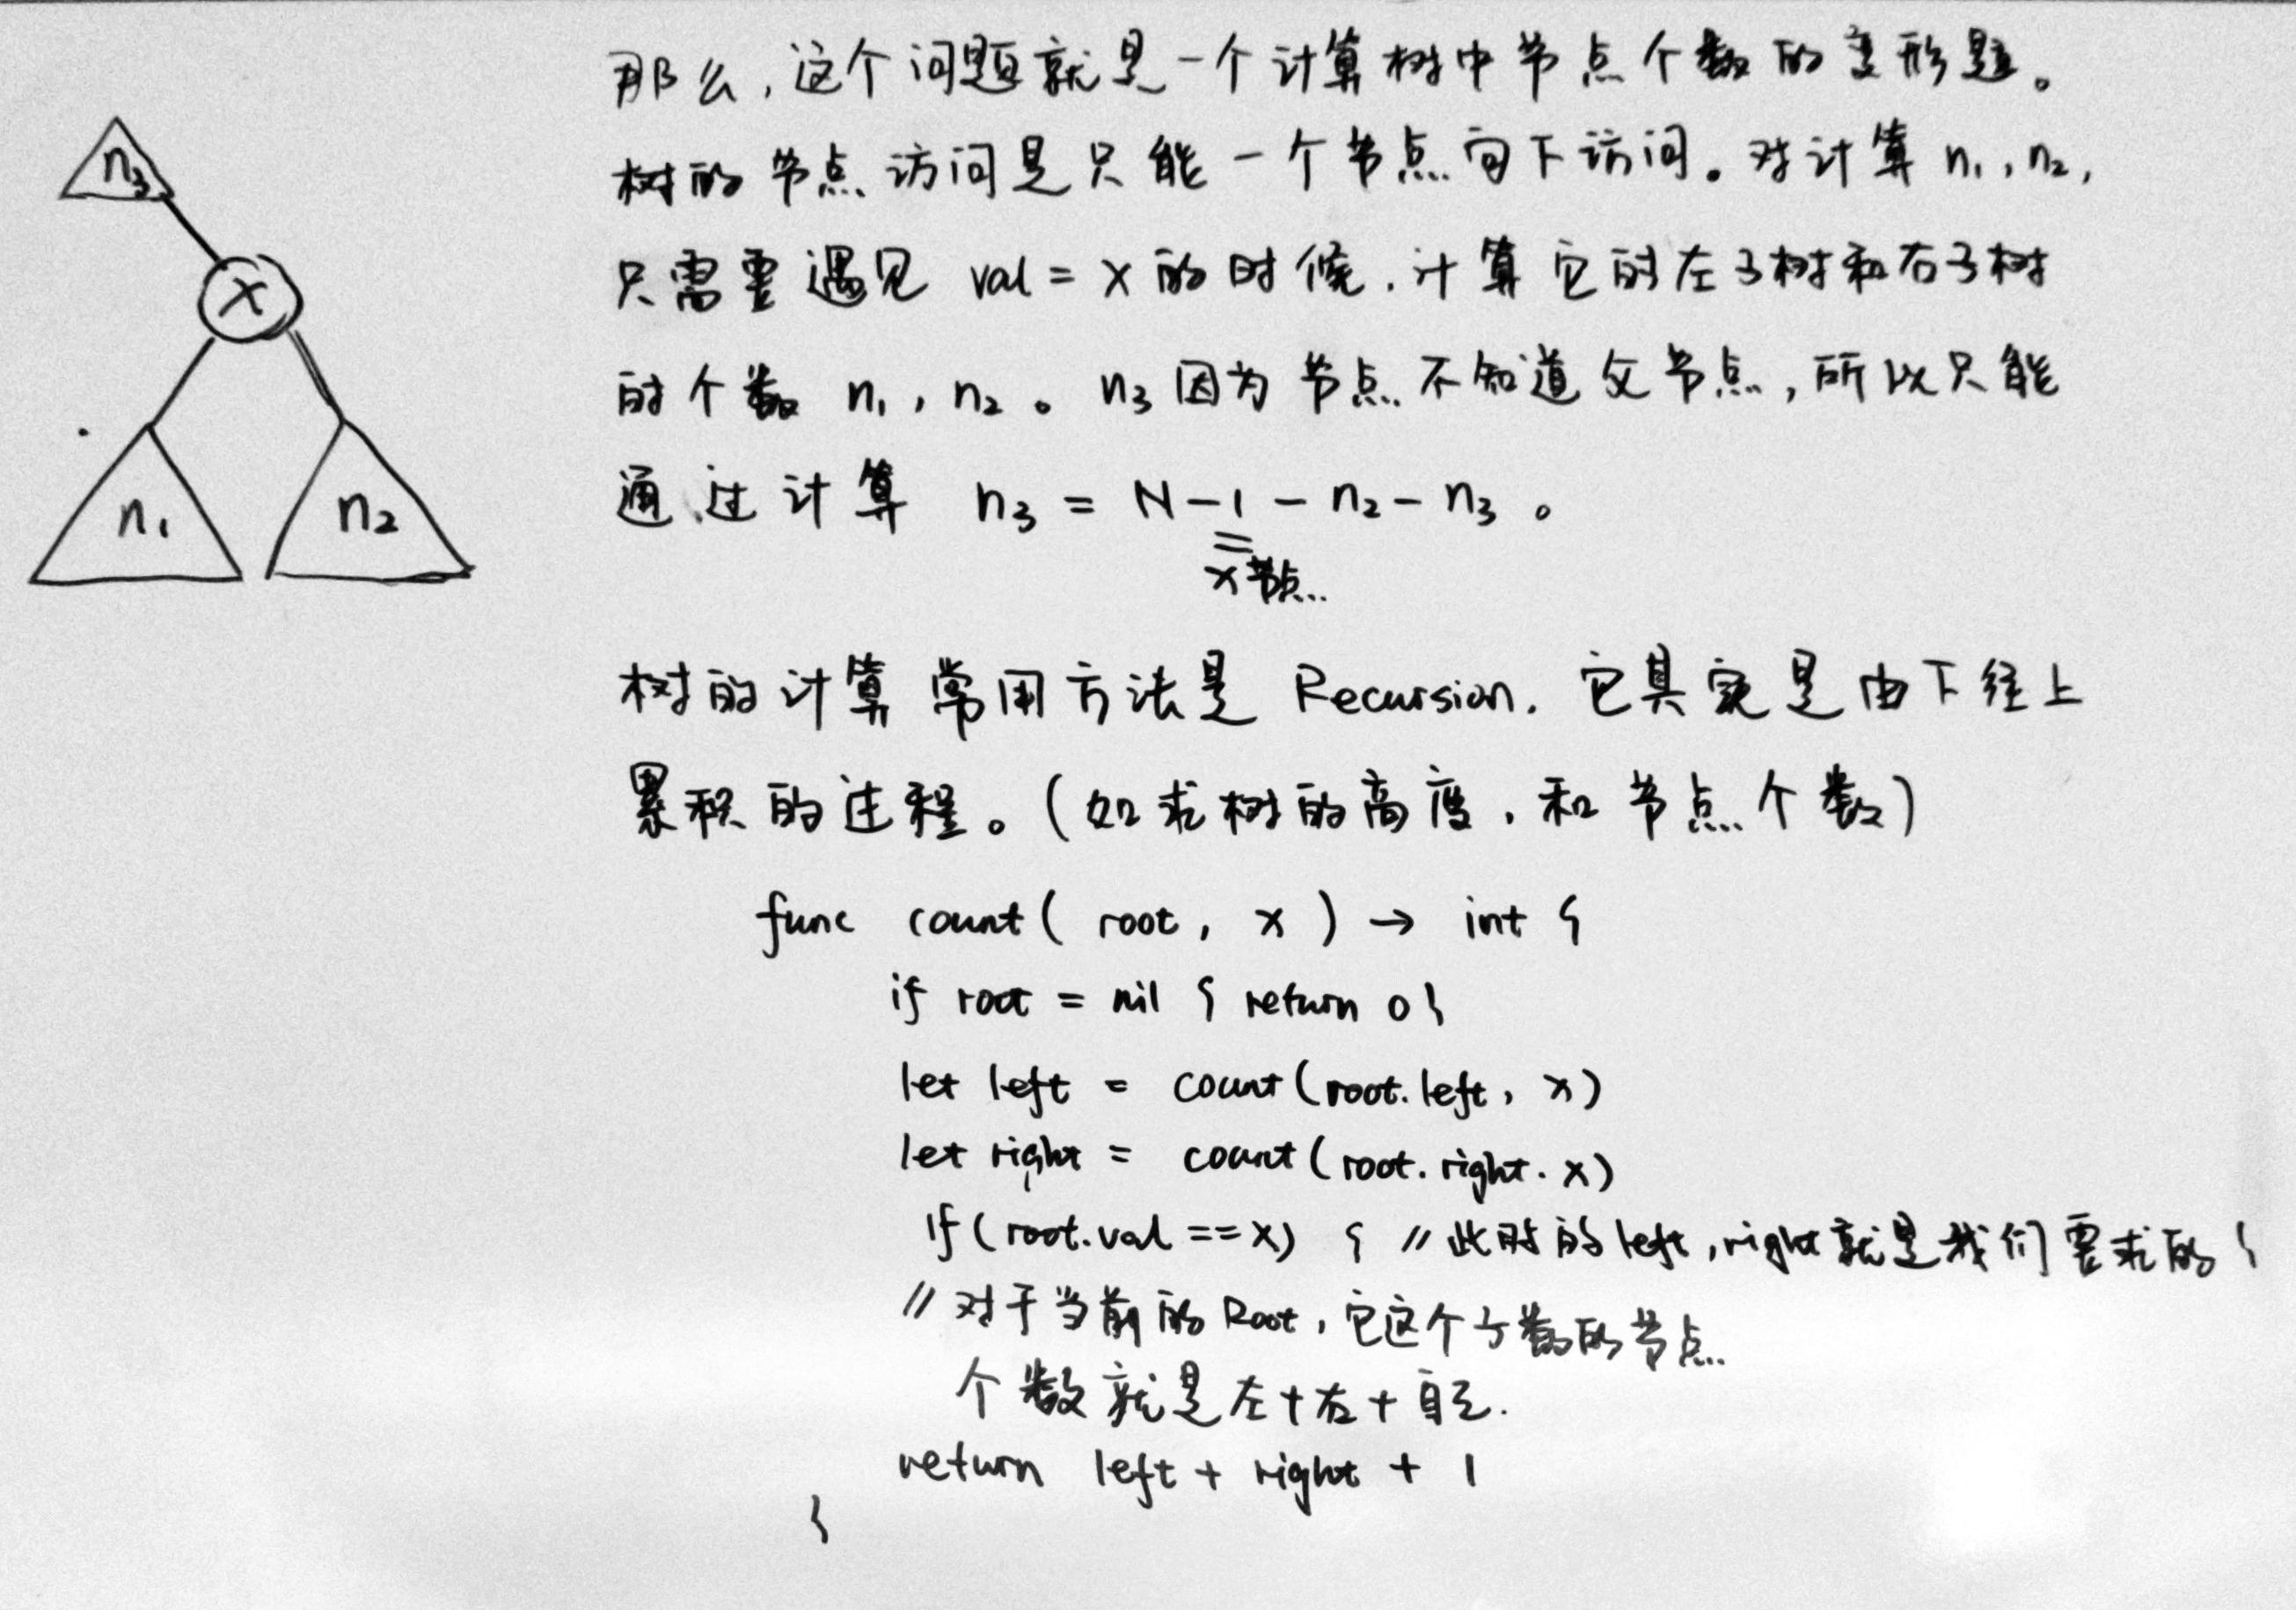 那么,这个问题就是一个计算树中节点个数的变形题。
树的节点访问是只能一个节点向下访问。对计算 n₁,n₂,
只需要遇见 val = x 的时候,计算它的左子树和右子树
的个数 n₁,n₂。n₃因为节点不知道父节点,所以只能
通过计算 n₃ = N-1-n₂-n₃。
x节点
n₃
x
n₁
n₂
树的计算常用方法是 Recursion. 它其实是由下往上
累积的过程。(如求树的高度,和节点个数)
func count( root, x ) → int {
if root = nil { return 0 }
let left = count(root.left, x)
let right = count(root.right. x)
if(root.val == x) { //此时的left,right就是我们要求的 }
//对于当前的Root,它这个子数的节点
个数就是左+右+自己.
return left + right + 1
}